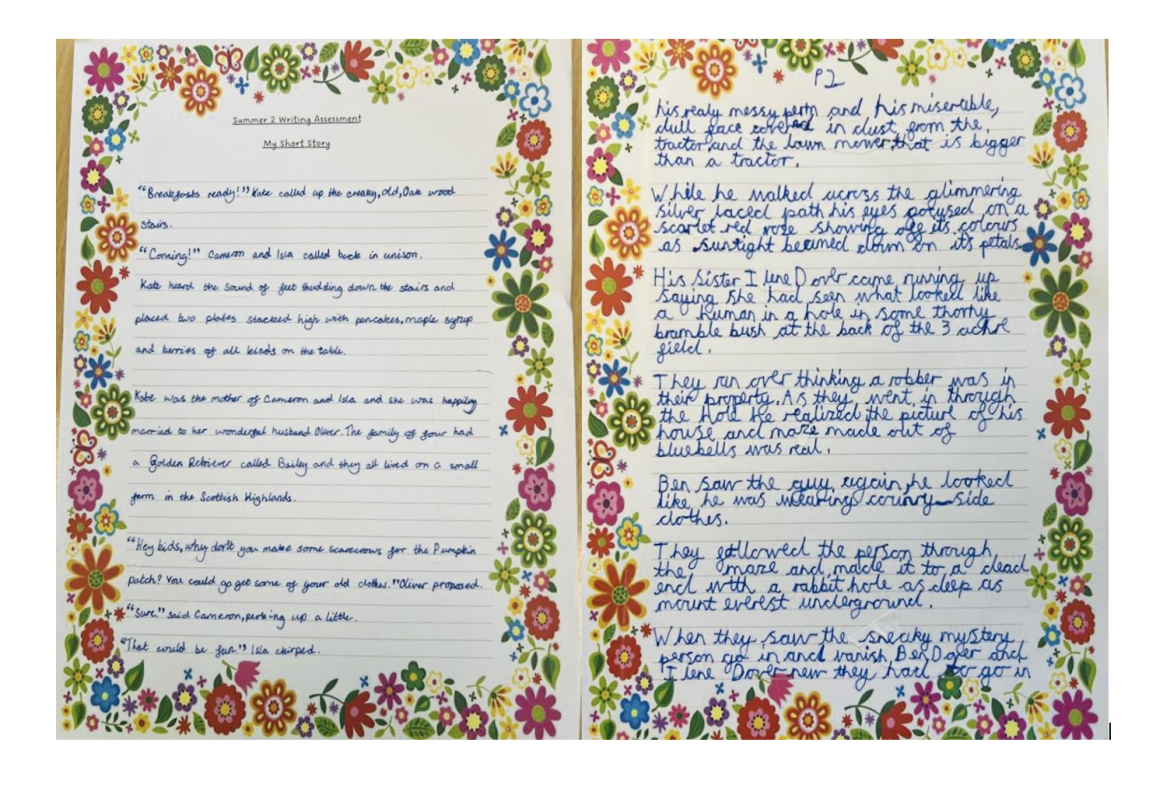 Summer 2 Writing Assessment
My Short Story
"Breakfasts ready!" Kate called up the creaky, old, Oak wood
stairs.
"Coming!" Cameron and Isla called back in unison.
Kate heard the sound of feet thudding down the stairs and
placed two plates stacked high with pancakes, maple syrup
and berries of all kinds on the table.
Kate was the mother of Cameron and Isla and she was happily
married to her wonderful husband Oliver. The family of four had
a Golden Retriever called Bailey and they all lived on a small
farm in the Scottish Highlands.
"Hey kids, why don't you make some scarecrows for the Pumpkin
patch? You could go get some of your old clothes." Oliver proposed.
"Sure." said Cameron, perking up a little.
"That could be fun." Isla chirped.
P2
his realy messy perm and his miserable,
dull face covered in dust from the
tractor and the lawn mower that is bigger
than a tractor.
While he walked across the glimmering
silver laced path his eyes focused on a
scarlet red rose showing off its colours
as sunlight beamed down on its petals
His sister Ilene Dover came running up
saying she had seen what looked like
a human in a hole in some thorny
bramble bush at the back of the 3 achre
field.
They ran over thinking a robber was in
their property. As they went in through
the hole he realized the picture of his
house and maze made out of
bluebells was real.
Ben saw the guy again, he looked
like he was wearing counry-side
clothes.
They followed the person through
the maze and made it to a dead
end with a rabbit hole as deep as
mount everest underground.
When they saw the sneaky mystery
person go in and vanish Ben Dover and
Ilene Dover new they had to go in